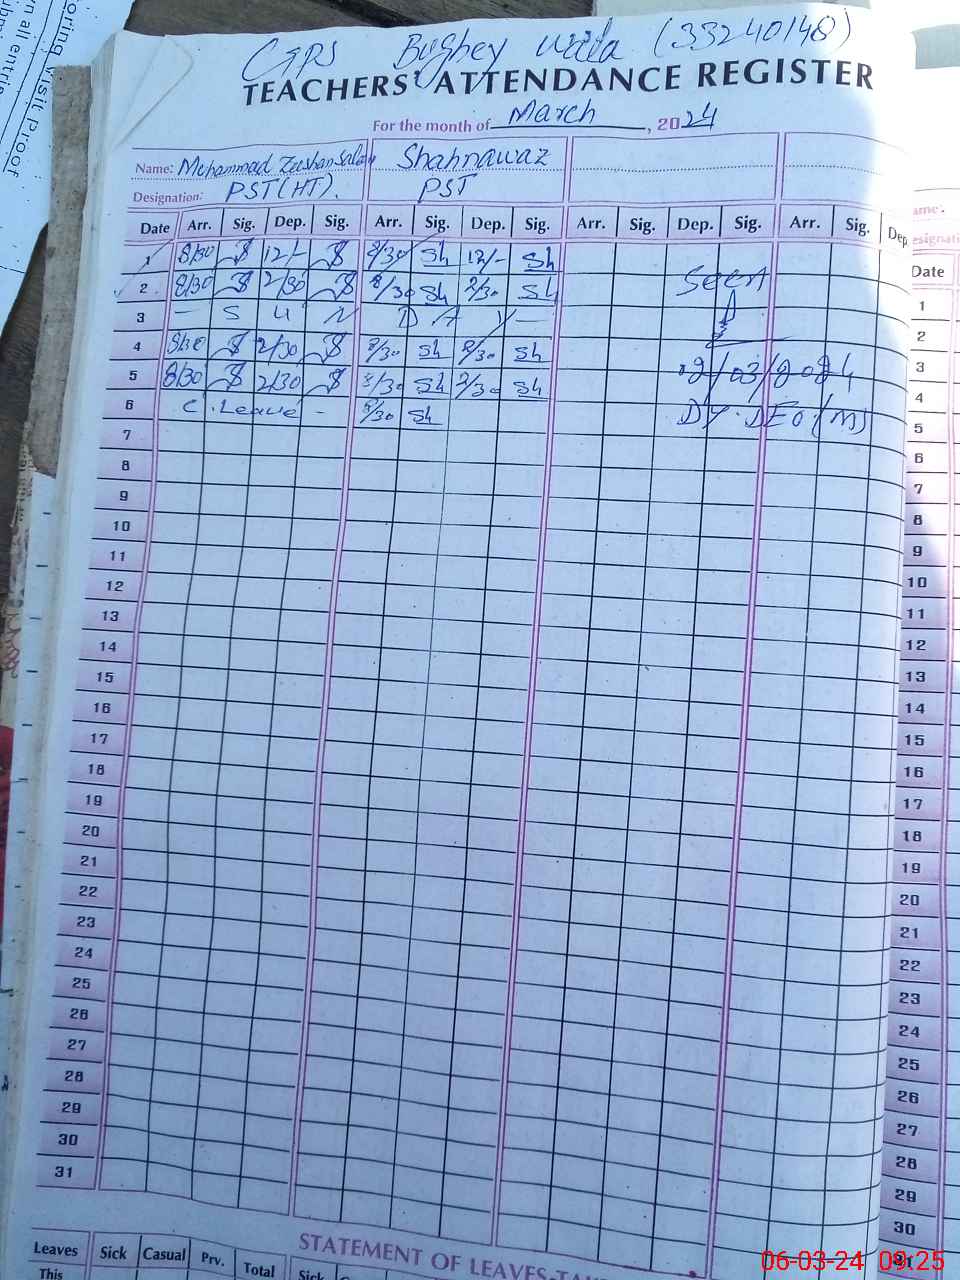 GPS Bughey Wala (33240148)
TEACHERS' ATTENDANCE REGISTER
For the month of March, 2024
Name: Muhammad Zeeshan Salam Shahnawaz
Designation: PST (HT). PST
Date Arr. Sig. Dep. Sig. Arr. Sig. Dep. Sig. Arr. Sig. Dep. Sig. Arr. Sig. Dep.
1 8/30 12/- 8/30 Sh 12/- Sh
2 8/30 2/30 8/30 Sh 2/30 Sh Seen
3 — S U N D A Y —
4 8/30 2/30 8/30 Sh 2/30 Sh
5 8/30 2/30 8/30 Sh 2/30 Sh /03/2024
6 C. Leave - 8/30 Sh DY. DEO. (M)
7
8
9
10
11
12
13
14
15
16
17
18
19
20
21
22
23
24
25
26
27
28
29
30
31
STATEMENT OF LEAVES
Leaves Sick Casual Prv. Total Sick
This
Date
1
2
3
4
5
6
7
8
9
10
11
12
13
14
15
16
17
18
19
20
21
22
23
24
25
26
27
28
29
30
oring Visit Proof
n all entri
06-03-24 09:25